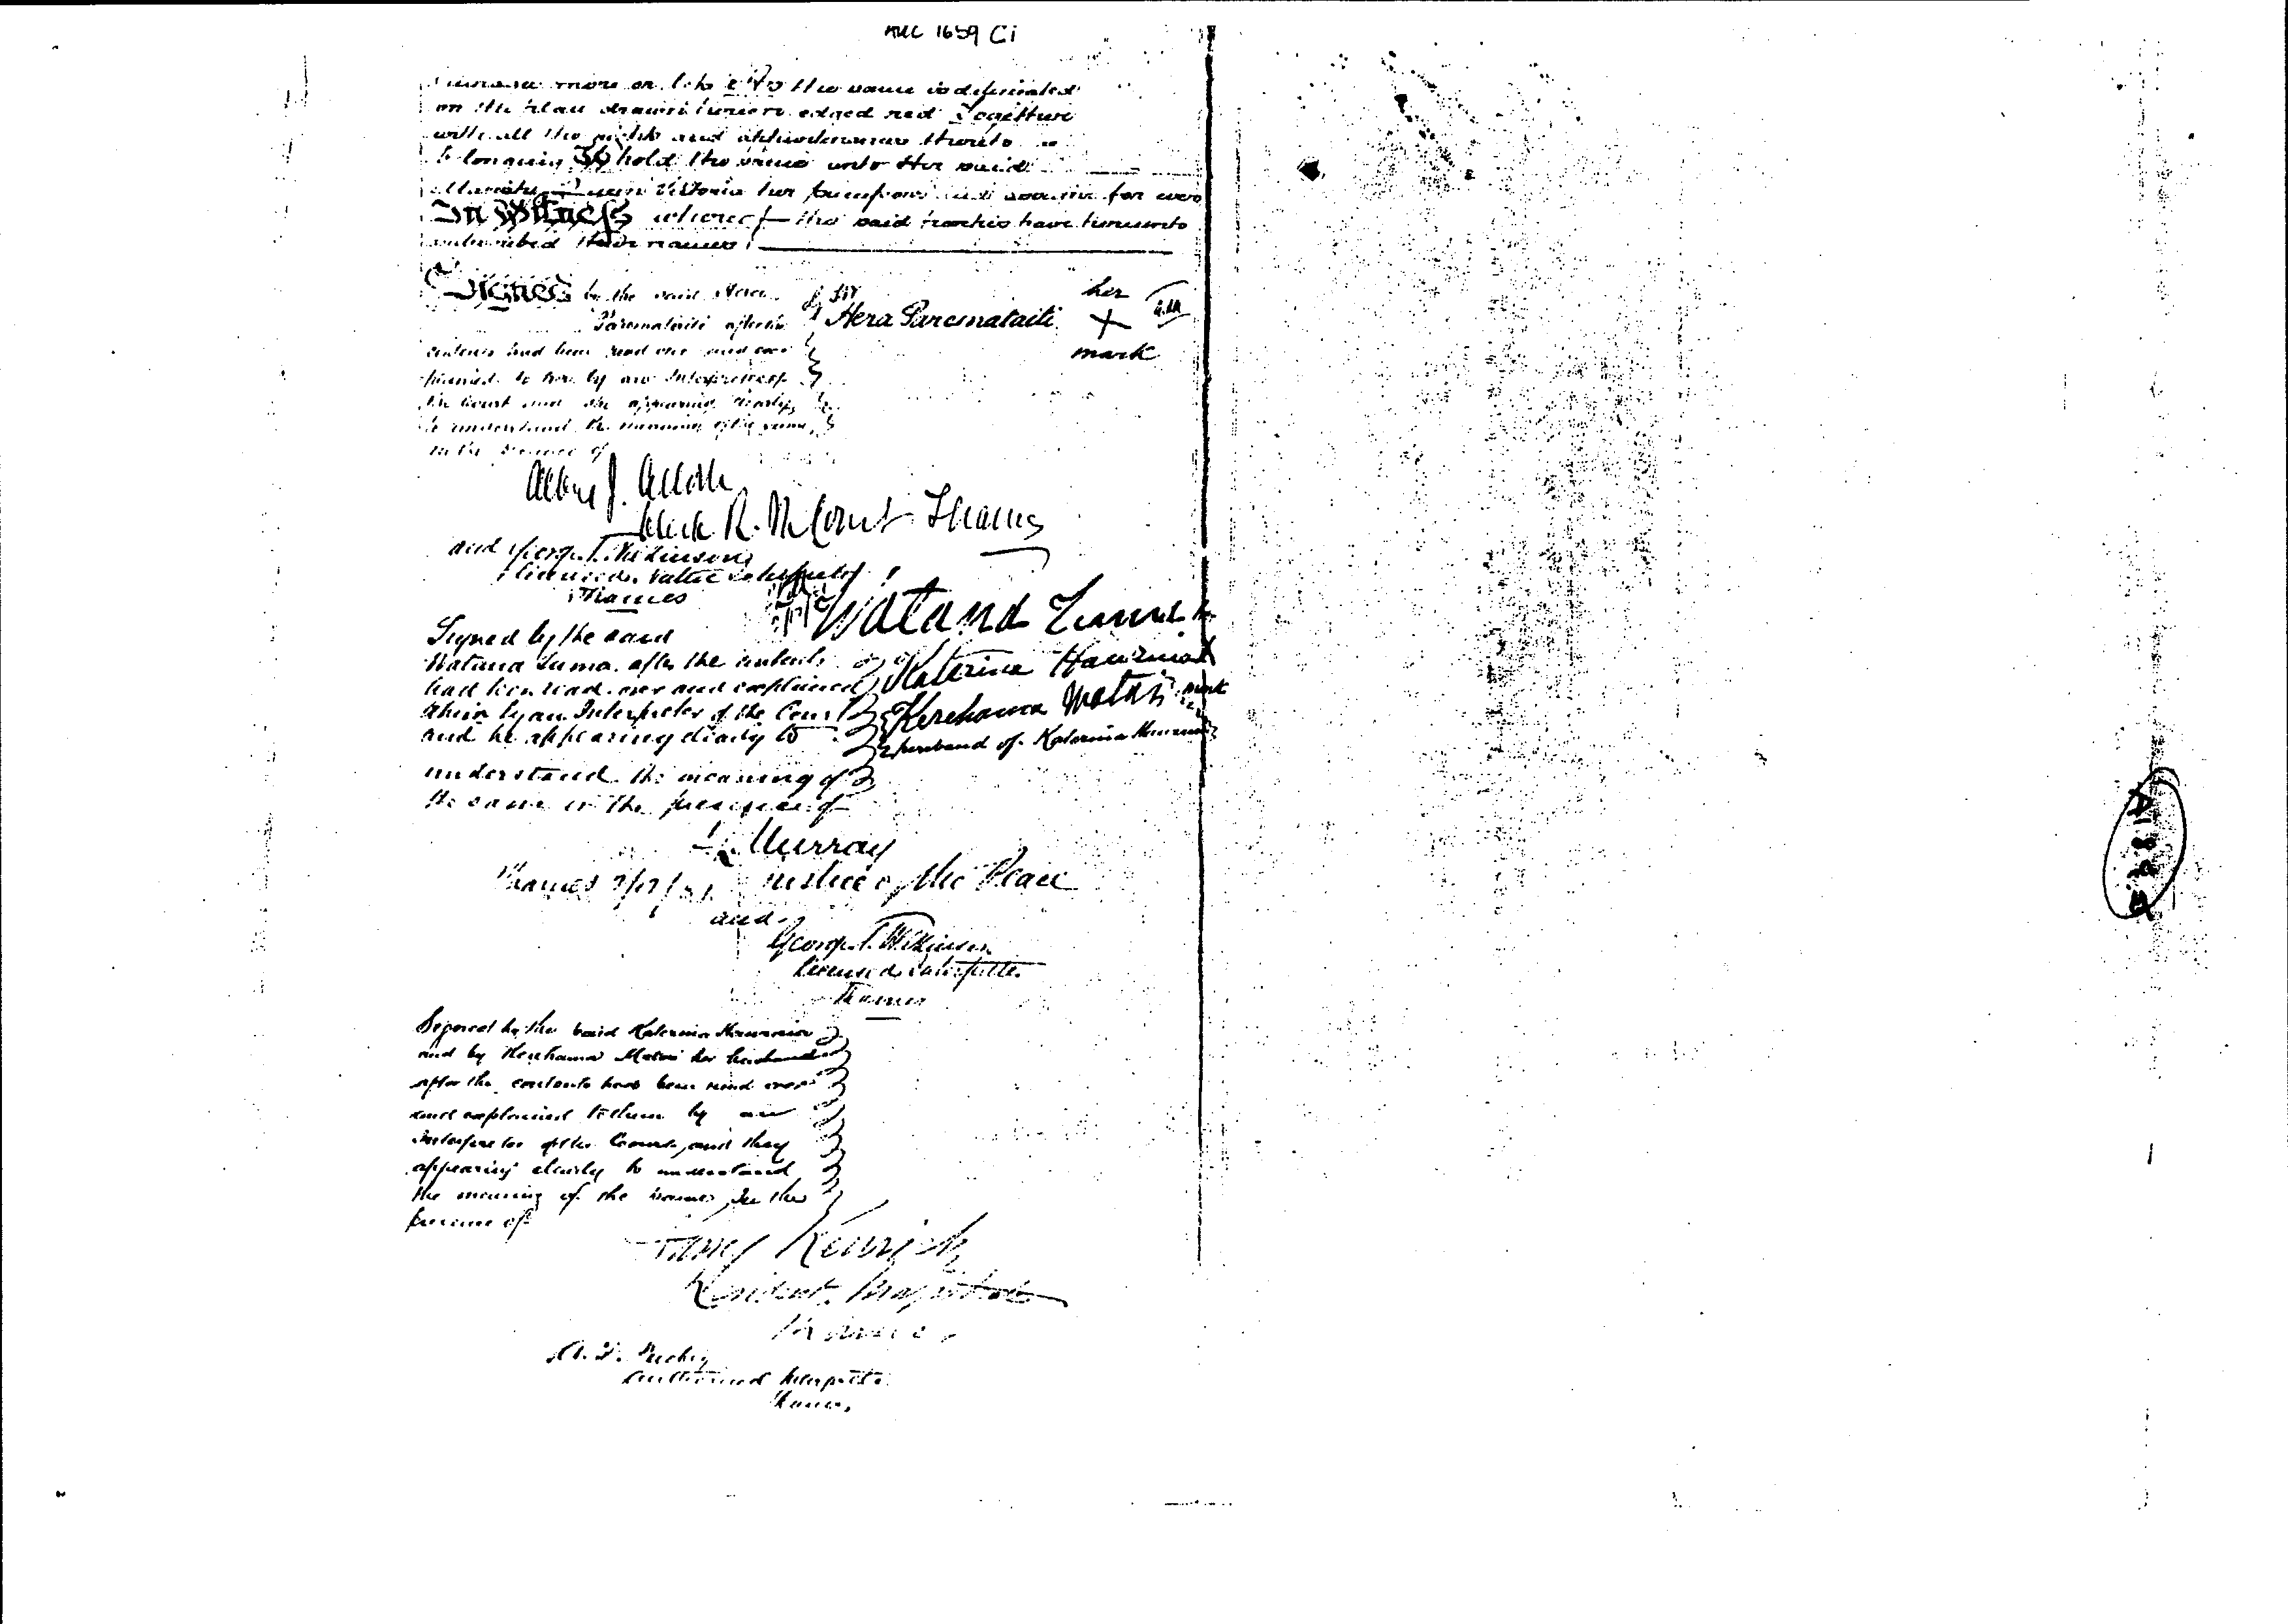 AUC 1659 Ci
more or less as the same is delineated
on the plan drawn hereon edged red Together
with all the rights and appurtenances thereto
belonging To hold the same unto Her said
Majesty Queen Victoria her successors and assigns for ever
In Witness whereof the said parties have hereunto
subscribed their names
Signed by the said Hera
Paremataiti after the
contents had been read over and ex
plained to her by an Interpreter of
the Court and she appearing clearly
to understand the meaning of the same
in the presence of
Hera Paremataiti her X mark
R. McCourt Thames
and George T. Wilkinson
Licensed Native Interpreter
Thames
Signed by the said
Watana Tuma after the contents
had been read over and explained
to him by an Interpreter of the Court
and he appearing clearly to
understand the meaning of
the same in the presence of
Watana Tuma
Katerina Hauruia
Kerehama Matai
husband of Katerina Hauruia
Murray
Thames Justice of the Peace
and
George T. Wilkinson
Licensed Interpreter
Thames
Signed by the said Katerina Hauruia
and by Kerehama Matai her husband
after the contents have been read over
and explained to them by an
Interpreter of the Court, and they
appearing clearly to understand
the meaning of the same, In the
presence of
Harry Kenrick
Resident Magistrate
Thames
Authorised Interpreter
Thames